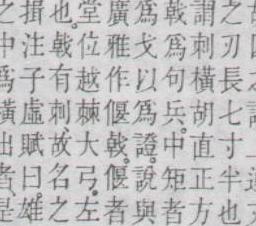 之刃長七寸半也
謂刺橫胡直正方
戟為句兵中矩者
爲戈以爲證說與
廣雅作偃戟偃者
堂位越棘大弓左
也戟有刺故名之
揖注子虛賦曰雄
之中爲橫出者是